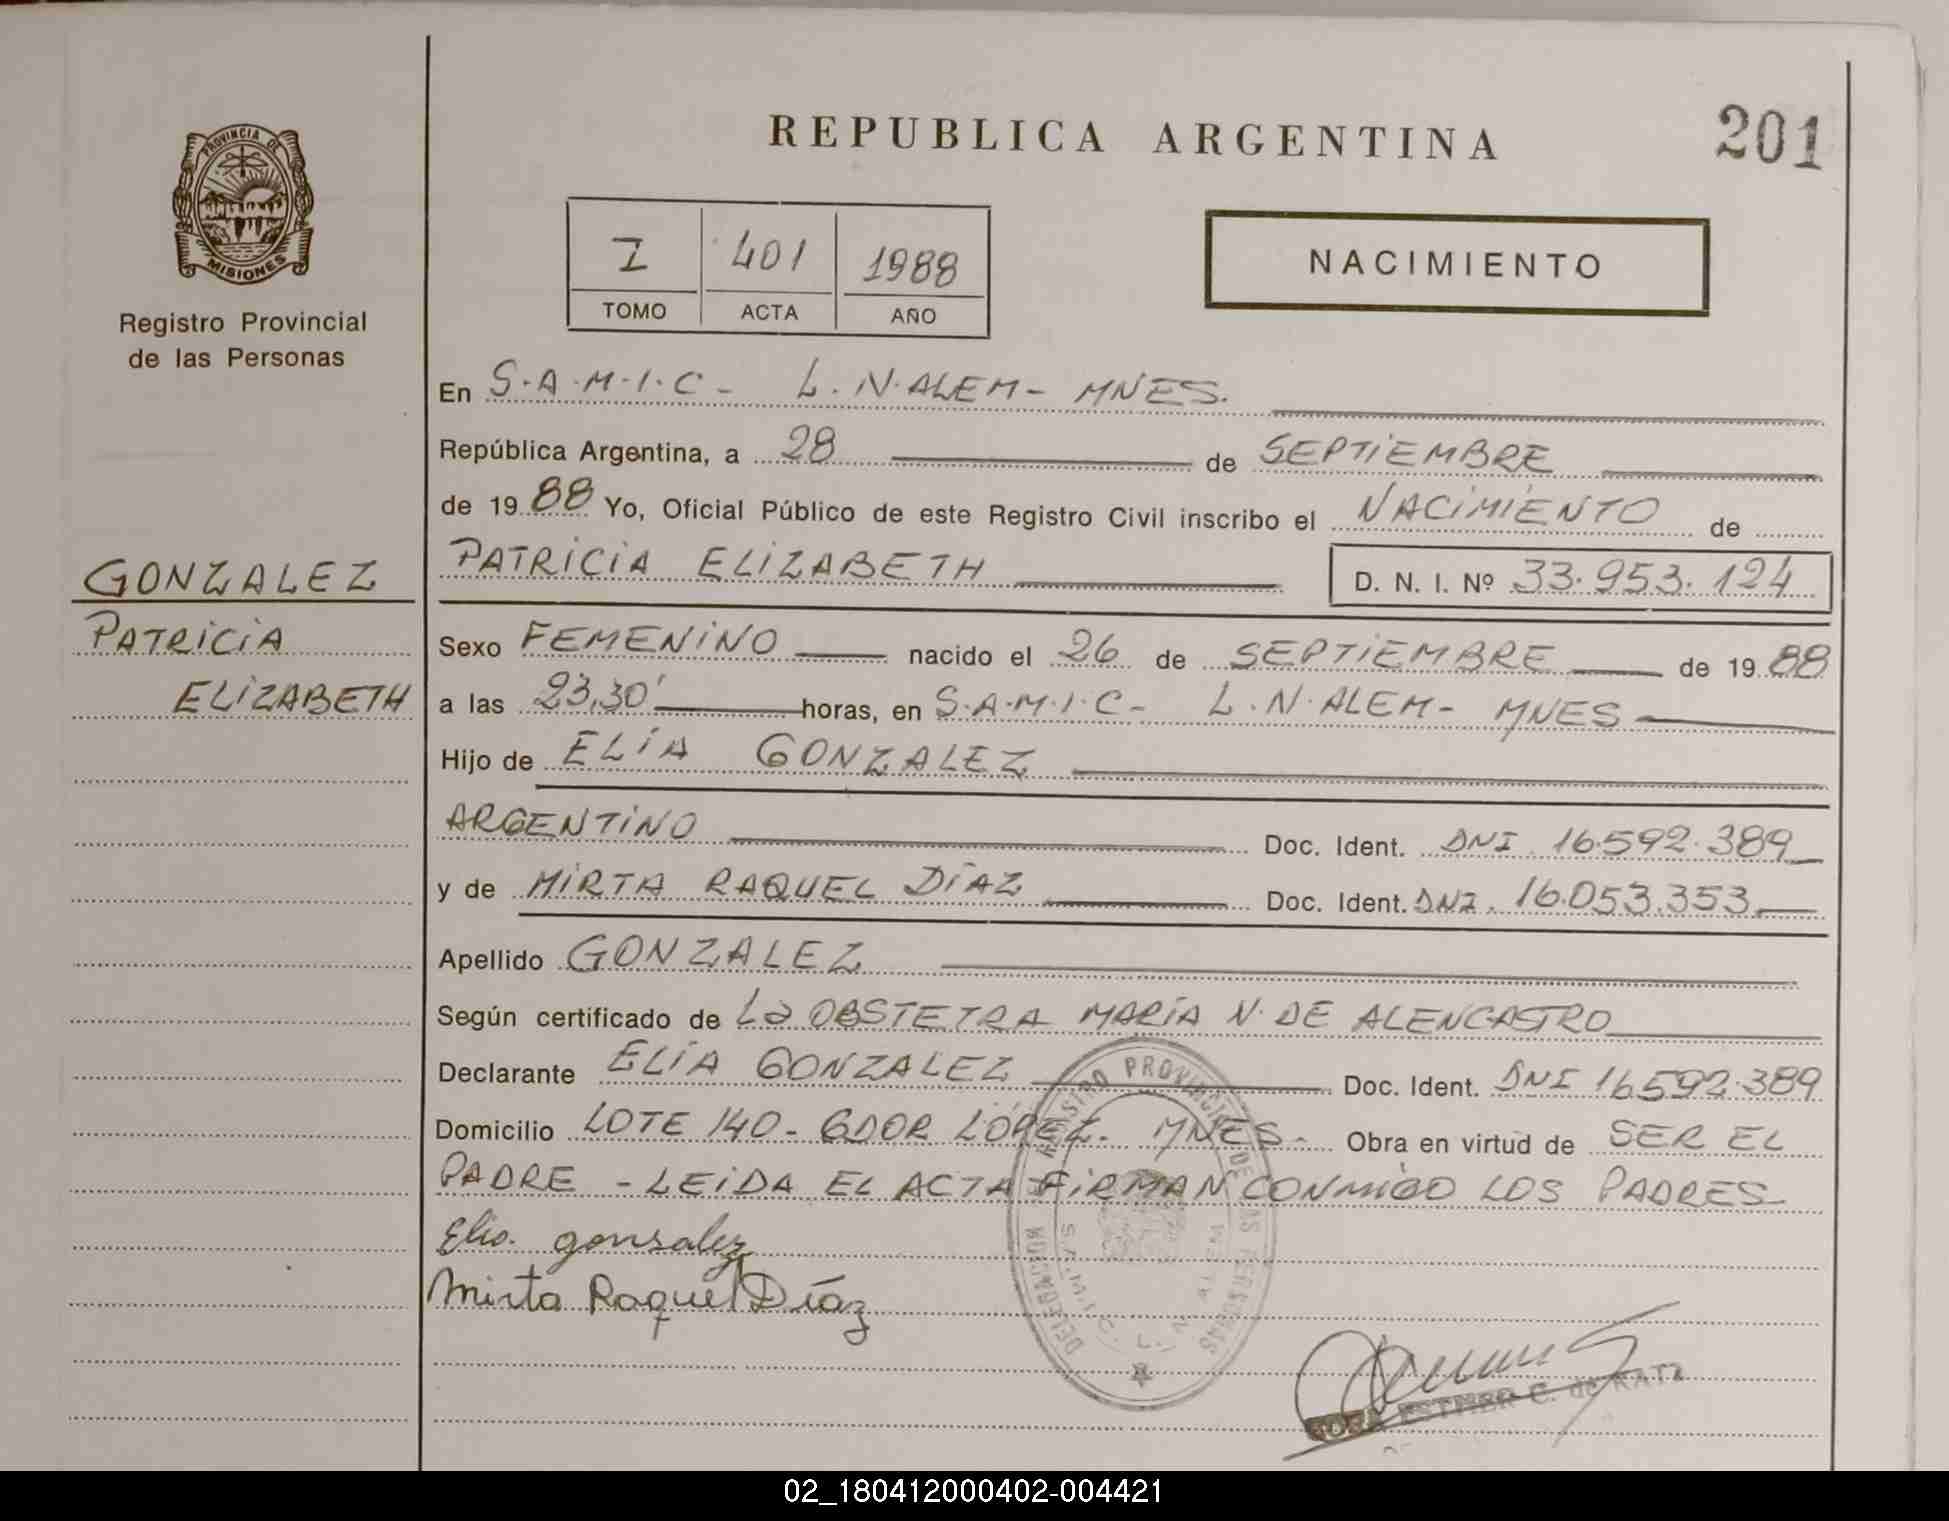 PROVINCIA DE
MISIONES
Registro Provincial
de las Personas
GONZALEZ
PATRICIA
ELIZABETH
REPUBLICA ARGENTINA
201
I 401 1988
TOMO ACTA AÑO
NACIMIENTO
En S.A.M.I.C - L.N.ALEM - MNES.
República Argentina, a 28 de SEPTIEMBRE
de 1988 Yo, Oficial Público de este Registro Civil inscribo el NACIMIENTO de
PATRICIA ELIZABETH D. N. I. Nº 33.953.124
Sexo FEMENINO nacido el 26 de SEPTIEMBRE de 1988
a las 23,30' horas, en S.A.M.I.C - L.N.ALEM - MNES
Hijo de ELIA GONZALEZ
ARGENTINO Doc. Ident. DNI 16.592.389
y de MIRTA RAQUEL DÍAZ Doc. Ident. DNI. 16.053.353
Apellido GONZALEZ
Según certificado de La OBSTETRA MARÍA N. DE ALENCASTRO
Declarante ELIA GONZALEZ Doc. Ident. DNI 16592.389
Domicilio LOTE 140 - GDOR LÓPEZ - MNES - Obra en virtud de SER EL
PADRE - LEIDA EL ACTA FIRMAN CONMIGO LOS PADRES
Elio. gonsalez
Mirta Raquel Díaz
DELEGACION REGISTRO PROVINCIAL DE LAS PERSONAS
S.A.M.I.C. L. N.
ESTHER C. de KATZ
02_180412000402-004421